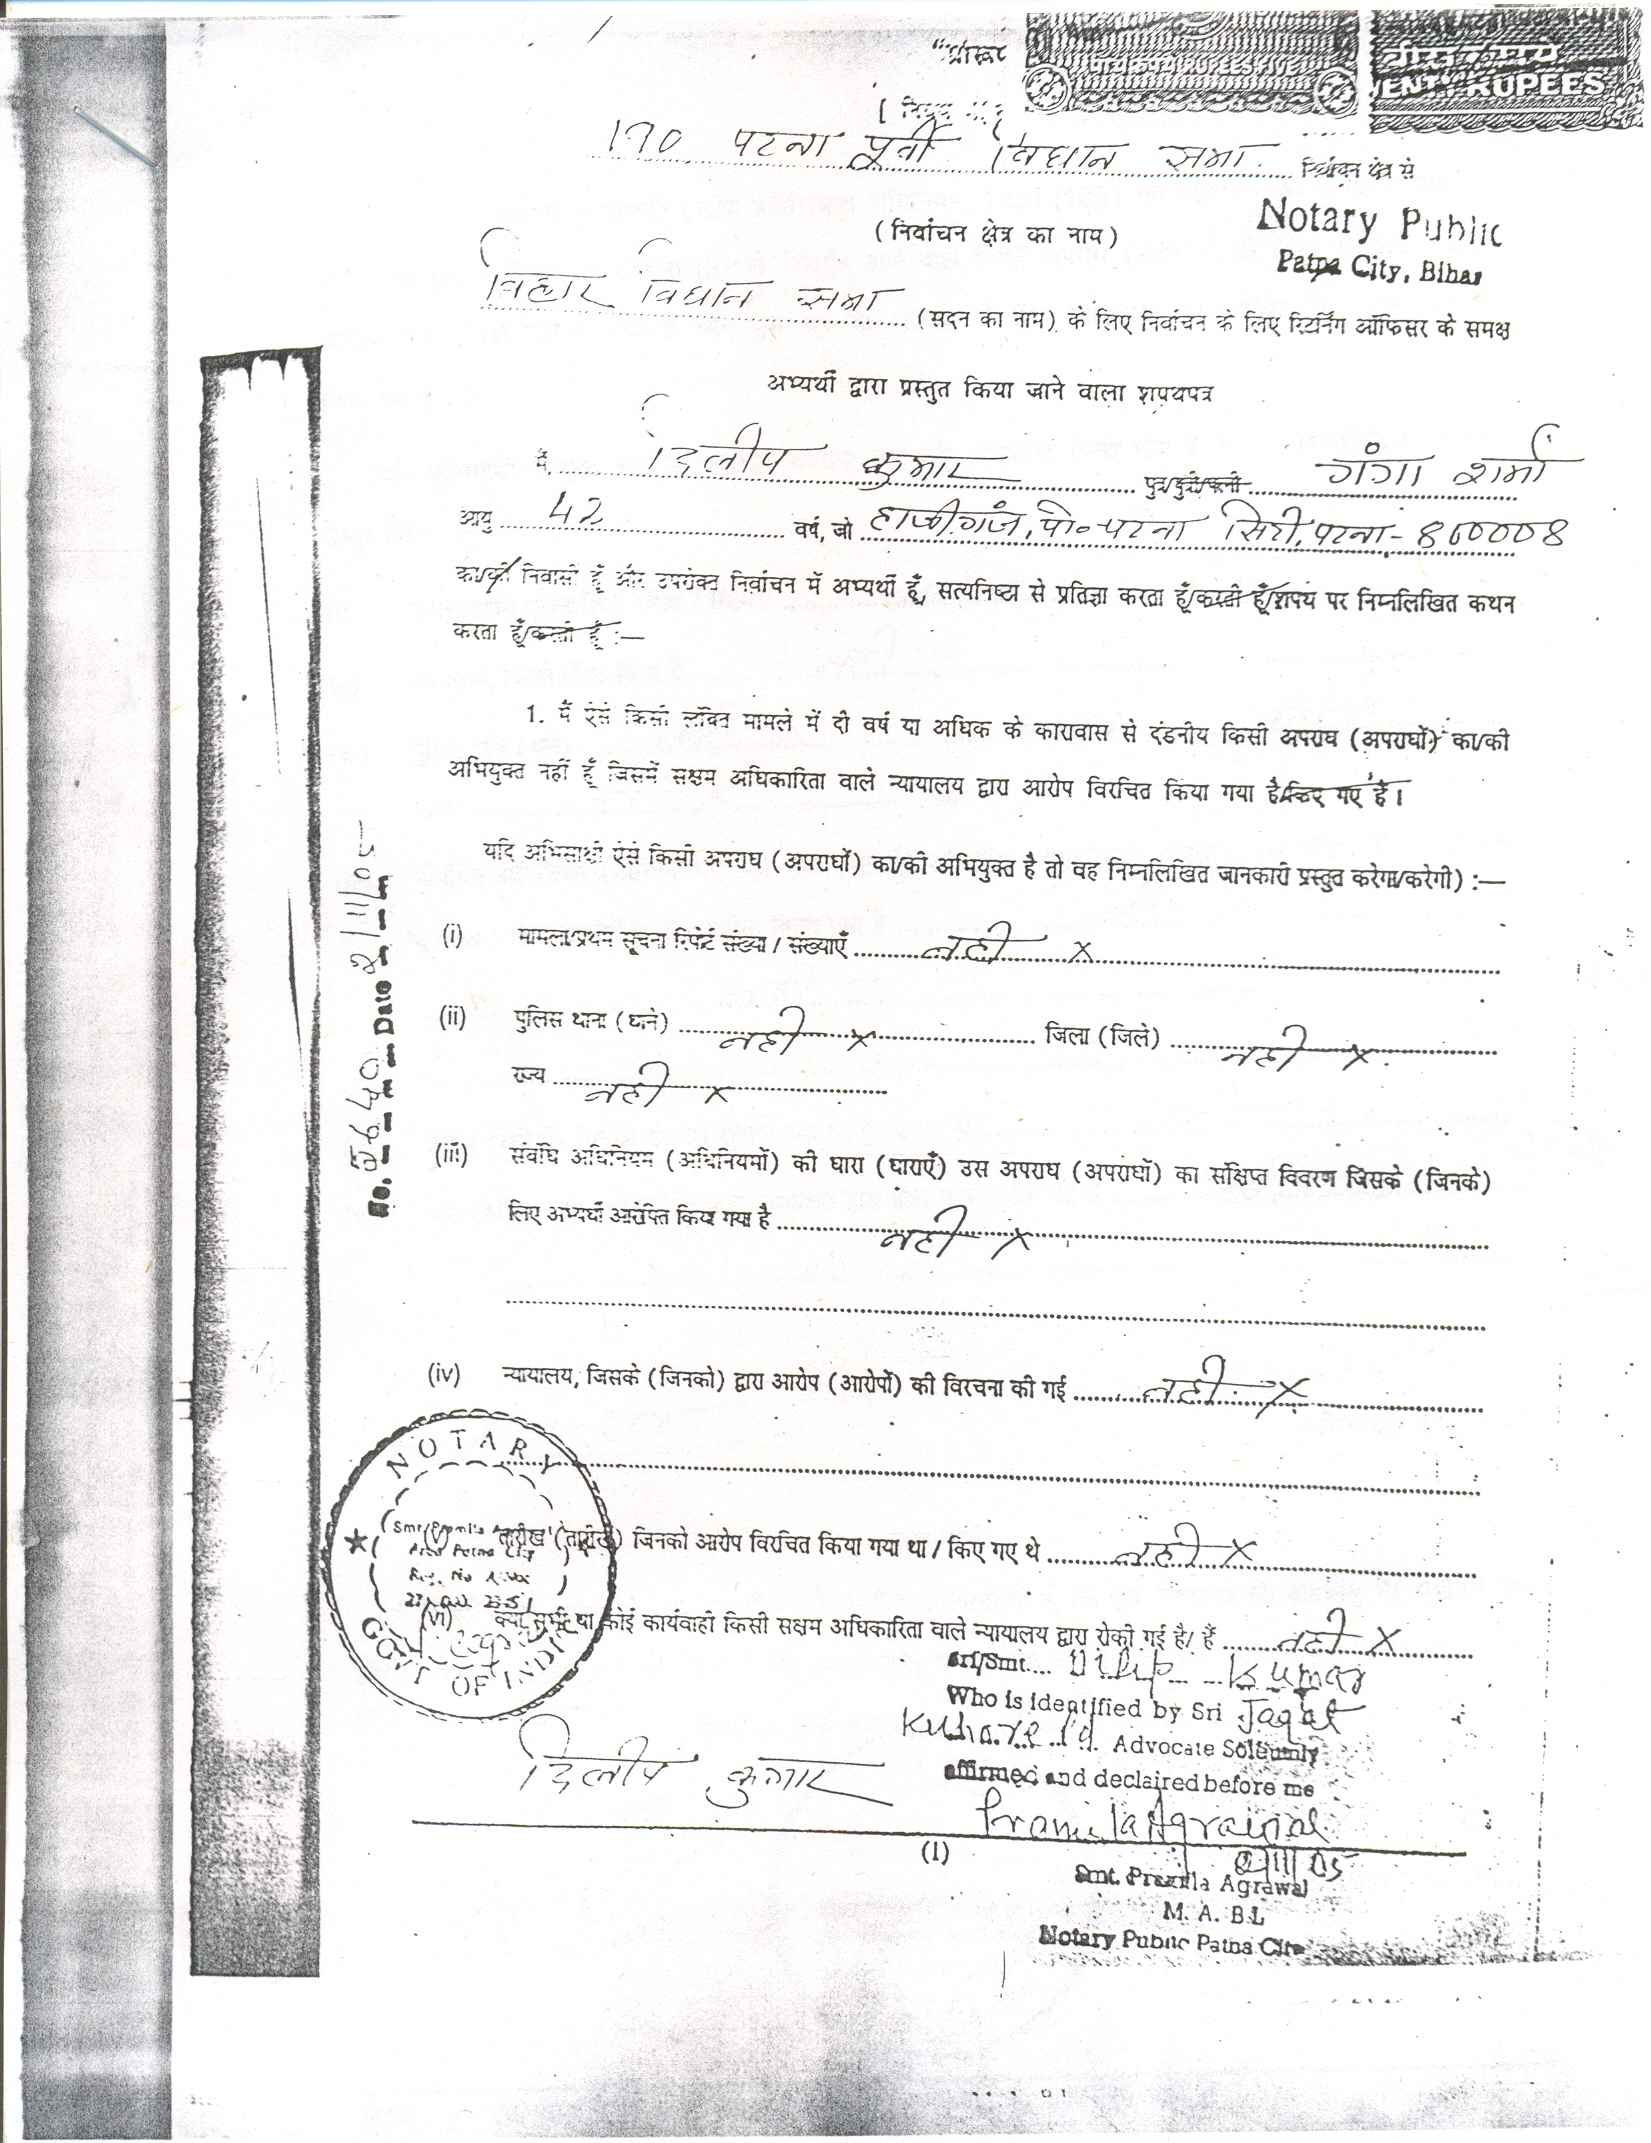 "प्रारूप
पाँच रुपये RUPEES FIVE
बीस रुपये
RUPEES
190 पटना पूर्वी विधान सभा निर्वाचन क्षेत्र से
(निर्वाचन क्षेत्र का नाम)
Notary Public
Patna City, Bihar
बिहार विधान सभा (सदन का नाम) के लिए निर्वाचन के लिए रिटर्निंग ऑफिसर के समक्ष
अभ्यर्थी द्वारा प्रस्तुत किया जाने वाला शपथपत्र
मैं, दिलीप कुमार पुत्र/पुत्री/पत्नी गंगा शर्मा
आयु 42 वर्ष, जो हाजीगंज, पो०-पटना सिटी, पटना-800008
का/की निवासी हूँ और उपरोक्त निर्वाचन में अभ्यर्थी हूँ, सत्यनिष्ठा से प्रतिज्ञा करता हूँ/करती हूँ/शपथ पर निम्नलिखित कथन
करता हूँ/करती हूँ :—
1. मैं ऐसे किसी लंबित मामले में दो वर्ष या अधिक के कारावास से दंडनीय किसी अपराध (अपराधों) का/की
अभियुक्त नहीं हूँ जिसमें सक्षम अधिकारिता वाले न्यायालय द्वारा आरोप विरचित किया गया है/किए गए हैं।
यदि अभिसाक्षी ऐसे किसी अपराध (अपराधों) का/की अभियुक्त है तो वह निम्नलिखित जानकारी प्रस्तुत करेगा/करेगी) :—
(i) मामला/प्रथम सूचना रिपोर्ट संख्या / संख्याएँ नहीं X
(ii) पुलिस थाना (थाने) नहीं X जिला (जिले) नहीं X
राज्य नहीं X
(iii) संबंधि अधिनियम (अधिनियमों) की धारा (धाराएँ) उस अपराध (अपराधों) का संक्षिप्त विवरण जिसके (जिनके)
लिए अभ्यर्थी आरोपित किया गया है नहीं X
(iv) न्यायालय, जिसके (जिनको) द्वारा आरोप (आरोपों) की विरचना की गई नहीं X
(v) तारीख (तारीखें) जिनको आरोप विरचित किया गया था / किए गए थे नहीं X
(vi) क्या सभी या कोई कार्यवाही किसी सक्षम अधिकारिता वाले न्यायालय द्वारा रोकी गई है/ हैं नहीं X
NOTARY
GOVT OF INDIA
No. Date 2/11/05
Sri/Smt.... Dilip Kumar
Who is identified by Sri
Advocate Solemnly
affirmed and declaired before me
दिलीप कुमार
Pramila Agrawal
2/11/05
(1)
Smt. Pramila Agrawal
M. A. B.L
Notary Public Patna City